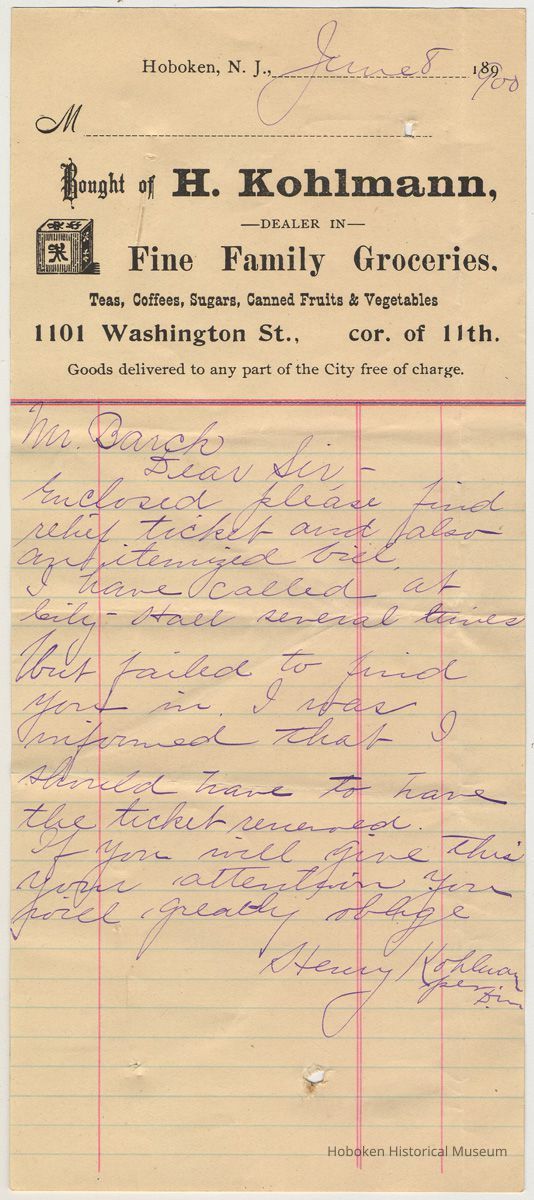 Hoboken, N. J., June 8 189 900
M
Bought of H. Kohlmann,
—DEALER IN—
Fine Family Groceries.
Teas, Coffees, Sugars, Canned Fruits & Vegetables
1101 Washington St., cor. of 11th.
Goods delivered to any part of the City free of charge.
Mr. Barck
Dear Sir-
Enclosed please find
relief ticket and also
an itemized bill.
I have called at
City Hall several times
but failed to find
you in. I was
informed that I
should have to have
the ticket renewed.
If you will give this
your attention you
will greatly oblige
Henry Kohlman
per
Hoboken Historical Museum